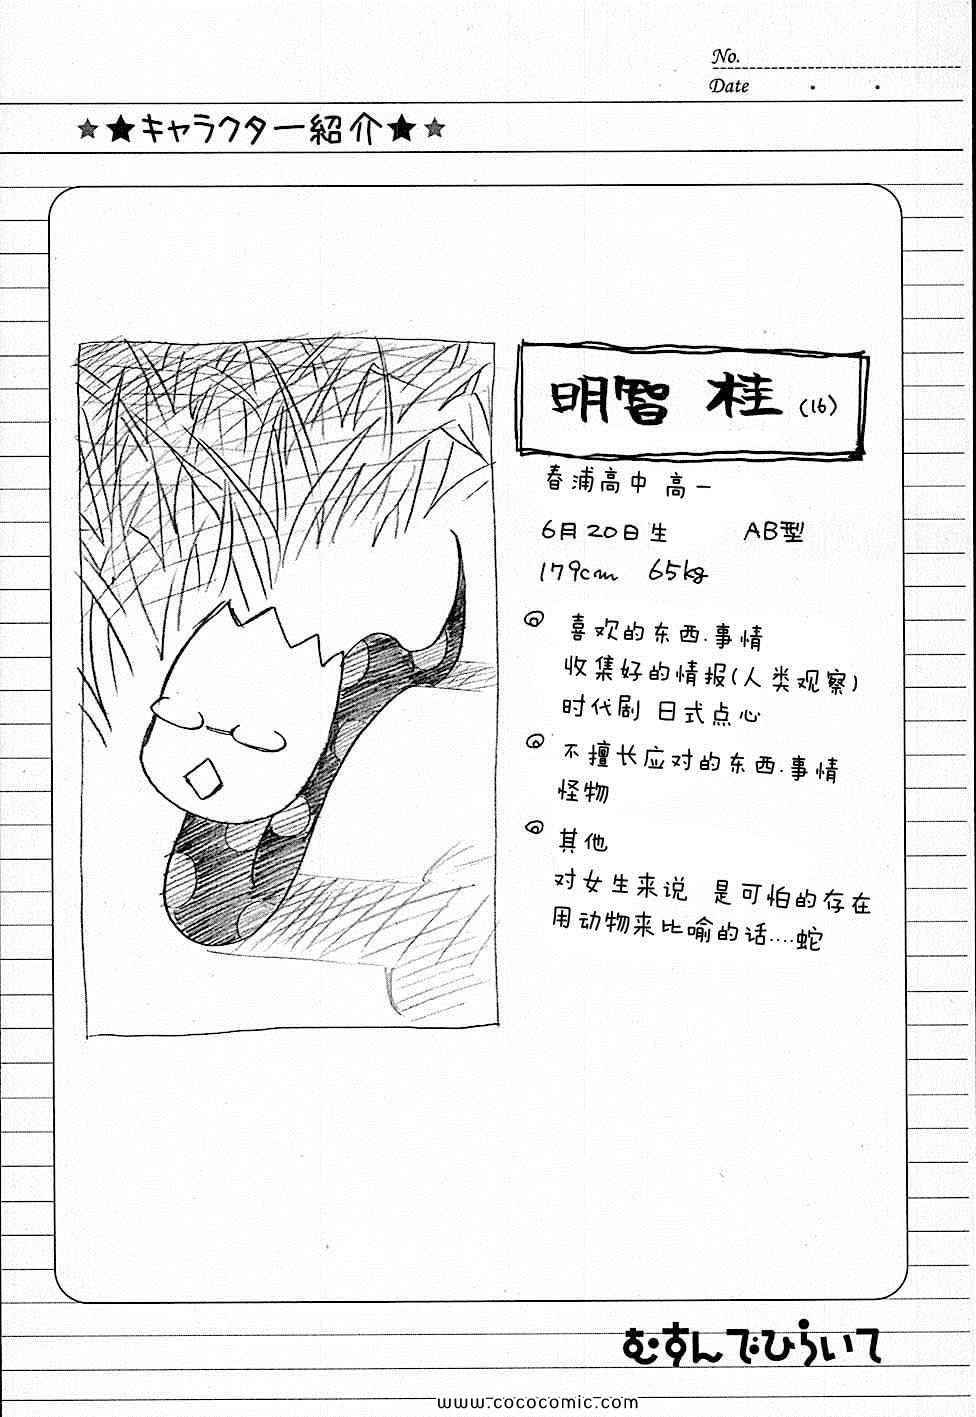 No.
Date
★★キャラクター紹介★★
明智 桂 (16)
春浦高中 高一
6月20日生 AB型
179cm 65kg
喜欢的东西.事情
收集好的情报(人类观察)
时代剧 日式点心
不擅长应对的东西.事情
怪物
其他
对女生来说 是可怕的存在
用动物来比喻的话....蛇
むすんでひらいて
www.cococomic.com